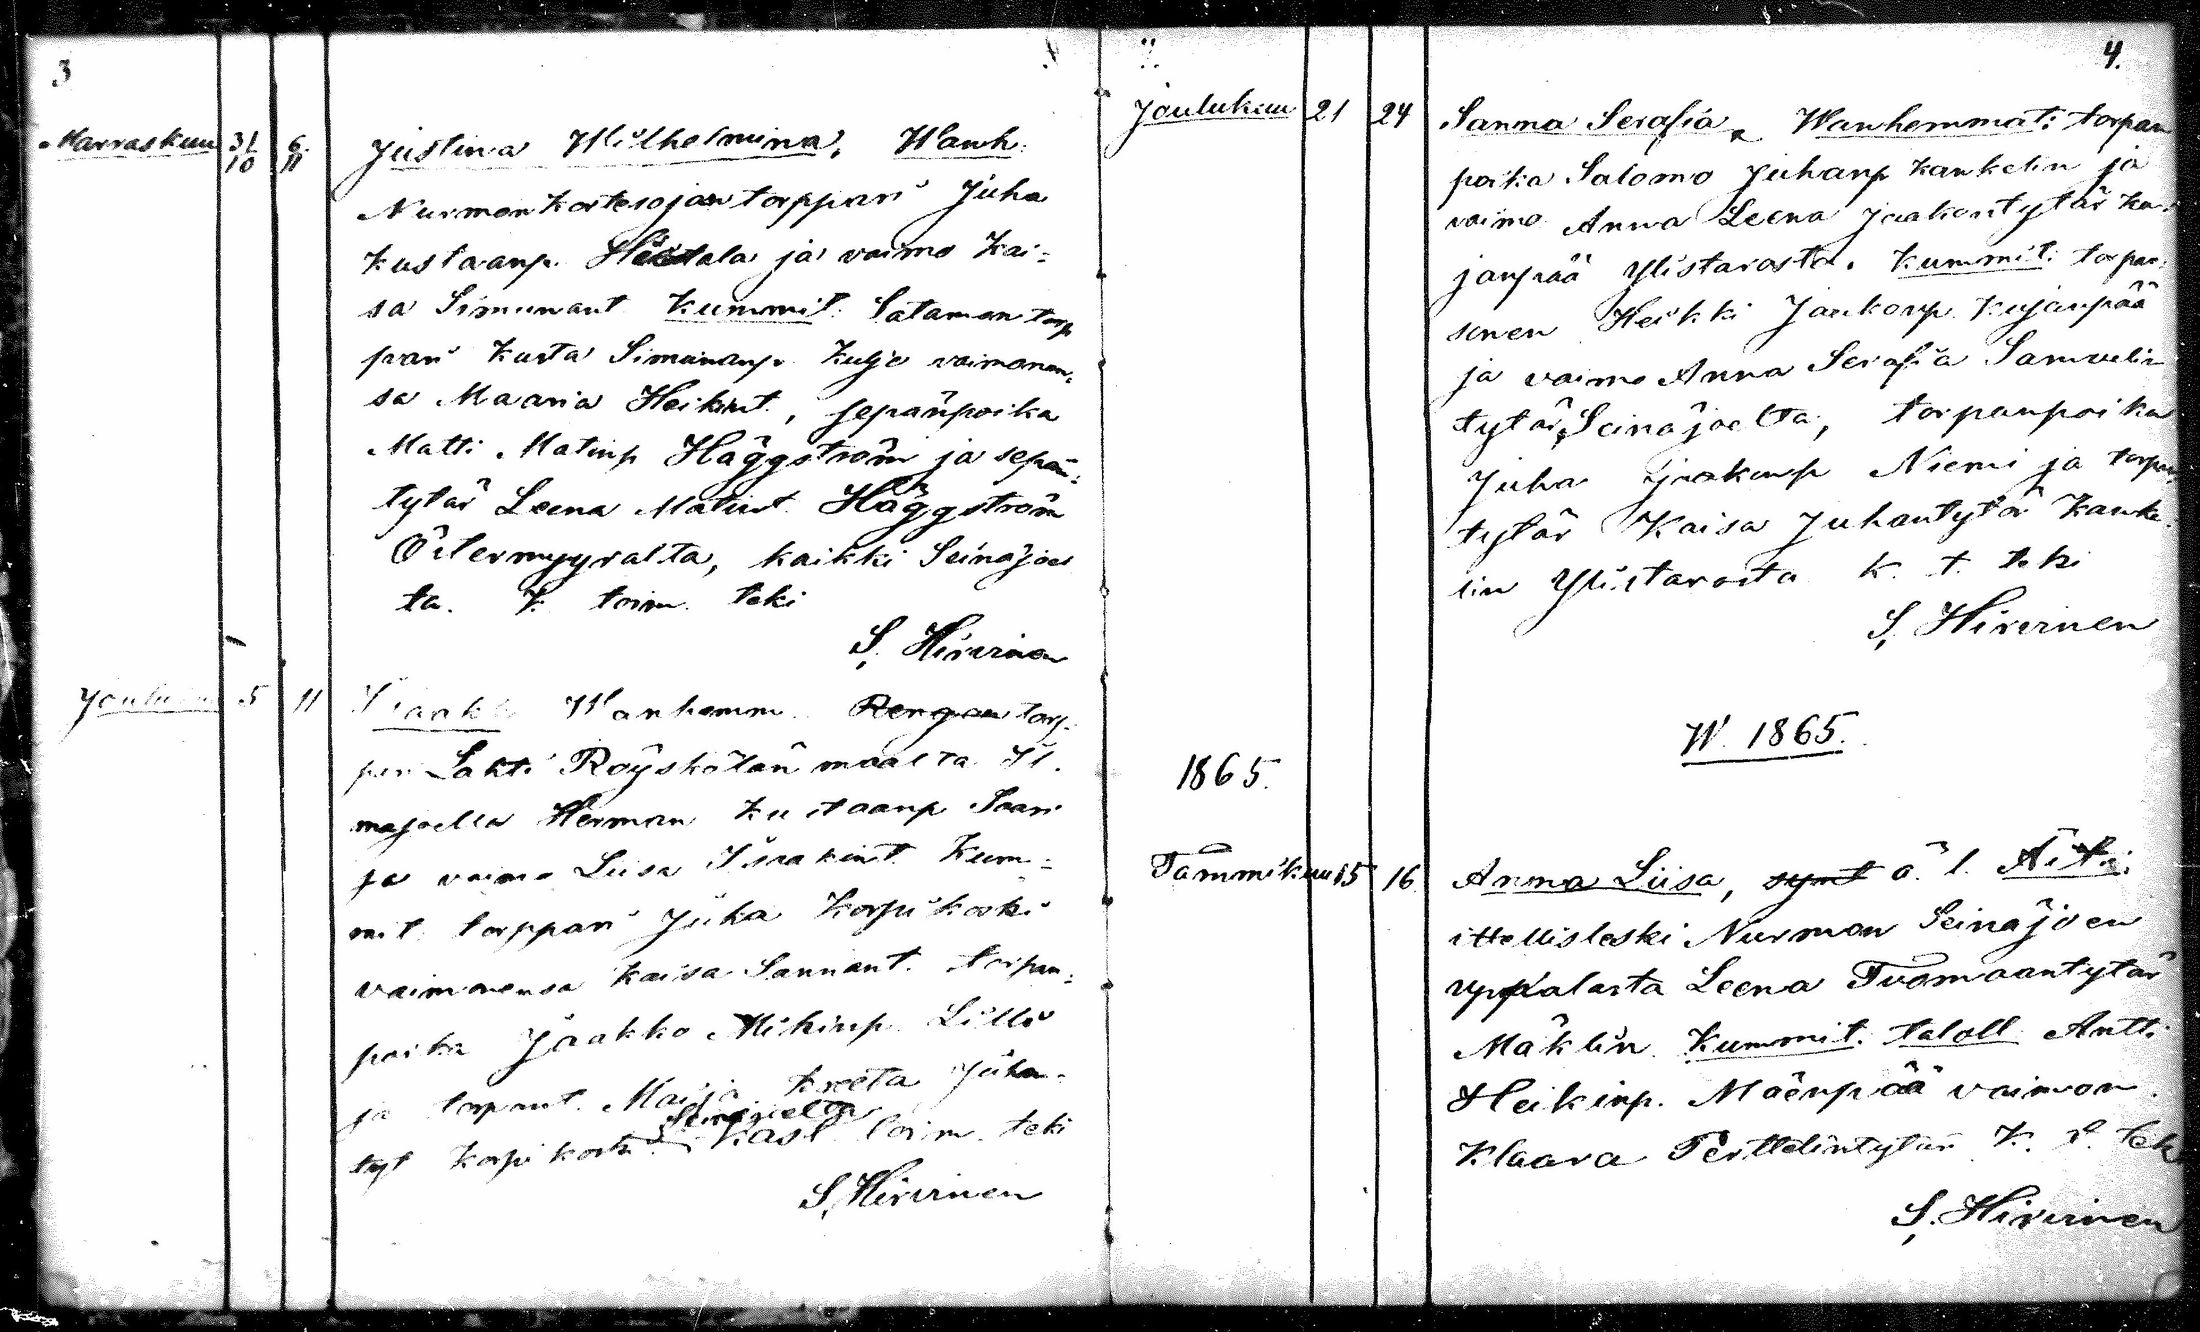 3
Marraskuu 31/10 6/11 Justina Wilhelmina, Wanh.
Nurmon Kortesojan torppari Juha
Kustaanp. Heikkala ja vaimo Kai-
sa Simunant. Kummit: Sataman torp
pari Kusta Simunanp. Kulje vaimonen-
sa Maaria Heikint., sepänpoika
Matti Matinp Häggström ja sepän-
tytär Leena Matint. Häggström
Östermyyralta, kaikki Seinäjoel
ta. K. toim. teki
S. Hirvinen
Jouluku 5 11 Iisakki Wanhemm. Rengon torp-
pari Lahti Röyskölän maalta Il.
majoella Herman Kustaanp Saari
ja vaimo Liisa Iisakint. Kum-
mit. torppari Juha Korpikoski
vaimonensa Kaisa Sannant. torpan-
poika Jaakko Mikinp. Lilli
ja torpant. Maija Kreeta Juhan-
tyt Korpikoski Seinäjoelta Kast. toim. teki
S. Hirvinen
4.
Joulukuu 21 24 Sanna Serafia, Wanhemmat: torpan
poika Salomo Juhanp Kankelin ja
vaimo Anna Leena Jaakontytär Ku-
janpää Ylistarosta. Kummit: torpan-
Heikki Jaakonp. Kujanpää
ja vaimo Anna Serafia Samuelin
tytär, Seinäjoelta, torpanpoika
Juha Jaakonp Niemi ja torpan
tytär Kaisa Juhantytär Kanke-
lin Ylistarosta K. t. teki
S. Hirvinen
W. 1865.
1865.
Tammikuu 15 16. Anna Liisa, synt ä. l. Äiti:
ittellisleski Nurmon Seinäjoen
Leena Tuomaantytär
Mäklin. Kummit. taloll. Antti
Heikinp. Mäenpää vaimon.
Klaara Perttelintytär K. t. tek
S. Hirvinen